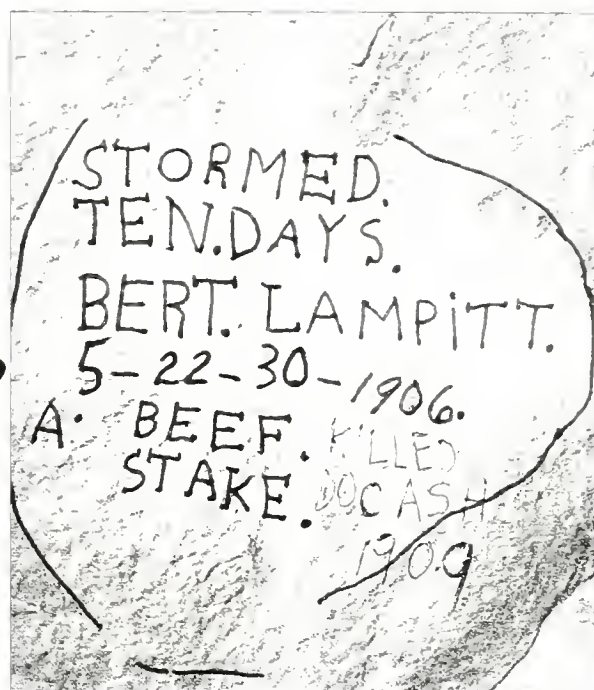 STORMED.
TEN.DAYS.
BERT. LAMPiTT.
5-22-30-1906.
A. BEEF.
STAKE.
KILLED
DOC ASH
1909